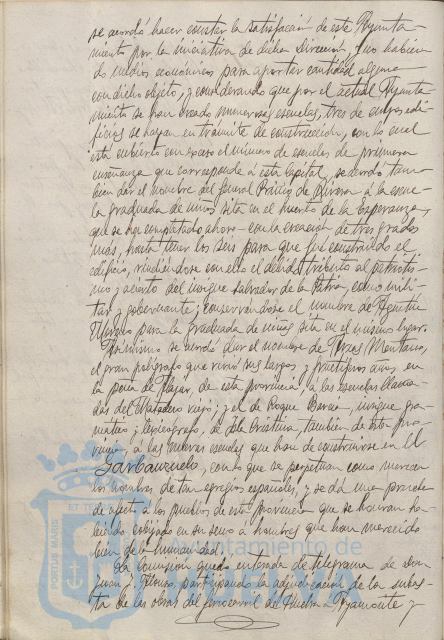 se acordó hacer constar la satisfacción de este Ayunta-
miento por la iniciativa de dicha Dirección, y no habien-
do medios económicos para aportar cantidad alguna
con dicho objeto, y considerando que por el actual Ayunta-
miento se han creado numerosas escuelas, tres de cuyos edi-
ficios se hayan en trámite de construcción, con lo cual
está cubierto con exceso el número de escuelas de primera
enseñanza que corresponde á esta Capital, se acordó tam-
bien dar el nombre del General Primo de Rivera á la escue-
la graduada de niños sita en el huerto de la Esperanza,
que se ha completado ahora con la creación de tres grados
más, hasta tener los seis para que fué construido el
edificio, rindiéndose con ello el debido tributo al patriotis-
mo y acierto del insigne salvador de la Patria, como mili-
tar y gobernante; conservándose el nombre de Agustín
Moreno para la graduada de niñas sita en el mismo lugar.
Asimismo se acordó dar el nombre de Arias Montano,
el gran polígrafo que vivió sus largos y fructíferos años en
la peña de Alájar, de esta provincia, á las escuelas llama-
das del Matadero viejo; y el de Roque Barcia, insigne gra-
mático y lexicógrafo, de Isla Cristina, tambien de esta pro-
vincia, á las nuevas escuelas que han de construirse en El
Garbanzuelo, con lo que se perpetuan como merecen
los nombres de tan egregios españoles, y se dá una prueba
de afecto á los pueblos de esta provincia que se honran ha-
biendo cobijado en su seno á hombres que han merecido
bien de la humanidad.
La Comisión quedó enterada de telegrama de don
Juan J. Alonso, participando la adjudicación de la subas-
ta de las obras del ferrocarril de Huelva á Ayamonte y
PORTUS MARIS
ET TERRAE
Ayuntamiento de
HUELVA